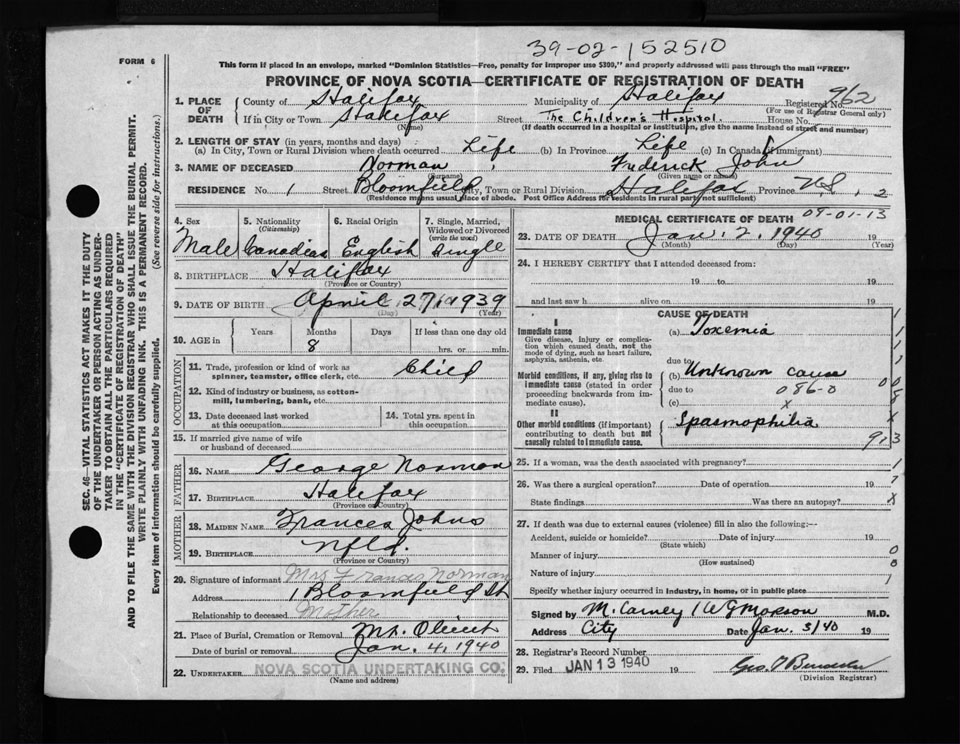 39-02-152510
FORM 6
This form if placed in an envelope, marked "Dominion Statistics—Free, penalty for improper use $300," and properly addressed will pass through the mail "FREE"
PROVINCE OF NOVA SCOTIA—CERTIFICATE OF REGISTRATION OF DEATH
1. PLACE OF DEATH County of Halifax Municipality of Halifax Registered No. 962
(For use of Registrar General only)
If in City or Town Halifax Street The Children's Hospital. House No.
(Name) (If death occurred in a hospital or institution, give the name instead of street and number)
2. LENGTH OF STAY (in years, months and days)
(a) In City, Town or Rural Division where death occurred Life (b) In Province Life (c) In Canada (if immigrant)
3. NAME OF DECEASED Norman, Frederick John
(Surname) (Given name or names)
RESIDENCE No. 1 Street Bloomfield City, Town or Rural Division Halifax Province N.S. 2
(Residence means usual place of abode. Post Office Address for residents in rural parts not sufficient)
4. Sex 5. Nationality 6. Racial Origin 7. Single, Married,
(Citizenship) Widowed or Divorced
(write the word)
Male Canadian English Single
8. BIRTHPLACE Halifax
(Province or Country)
9. DATE OF BIRTH April 27 1939
(Day) (Year)
10. AGE in Years Months Days If less than one day old
8 hrs. or min.
OCCUPATION
11. Trade, profession or kind of work as Child
spinner, teamster, office clerk, etc.
12. Kind of industry or business, as cotton-
mill, lumbering, bank, etc.
13. Date deceased last worked 14. Total yrs. spent in
at this occupation this occupation
15. If married give name of wife
or husband of deceased
FATHER
16. NAME George Norman
17. BIRTHPLACE Halifax
(Province or Country)
MOTHER
18. MAIDEN NAME Frances Johns
19. BIRTHPLACE Nfld.
(Province or Country)
20. Signature of informant Mrs Frances Norman
Address 1 Bloomfield St
Relationship to deceased Mother
21. Place of Burial, Cremation or Removal Mt. Olivet
Date of burial or removal Jan. 4, 1940
22. UNDERTAKER NOVA SCOTIA UNDERTAKING CO.
(Name and address)
MEDICAL CERTIFICATE OF DEATH 09-01-13
23. DATE OF DEATH Jan. 2. 1940 19
(Month) (Day) (Year)
24. I HEREBY CERTIFY that I attended deceased from:
19 to 19
and last saw h alive on 19
CAUSE OF DEATH
I
Immediate cause (a) Toxemia
Give disease, injury or complica-
tion which caused death, not the
mode of dying, such as heart failure,
asphyxia, asthenia, etc.
due to
Morbid conditions, if any, giving rise to (b) Unknown cause
immediate cause (stated in order due to 086-0
proceeding backwards from im-
mediate cause). (c) x
II
Other morbid conditions (if important) Spasmophilia
contributing to death but not
causally related to immediate cause.
25. If a woman, was the death associated with pregnancy?
26. Was there a surgical operation? Date of operation 19
State findings Was there an autopsy?
27. If death was due to external causes (violence) fill in also the following:—
Accident, suicide or homicide? Date of injury 19
(State which)
Manner of injury
(How sustained)
Nature of injury
Specify whether injury occurred in industry, in home, or in public place
Signed by M. Carney / M.D.
Address City Date Jan. 3/40 19
28. Registrar's Record Number
29. Filed JAN 13 1940 19
(Division Registrar)
SEC. 46—VITAL STATISTICS ACT MAKES IT THE DUTY
OF THE UNDERTAKER OR PERSON ACTING AS UNDER-
TAKER TO OBTAIN ALL THE PARTICULARS REQUIRED
IN THE "CERTIFICATE OF REGISTRATION OF DEATH"
AND TO FILE THE SAME WITH THE DIVISION REGISTRAR WHO SHALL ISSUE THE BURIAL PERMIT.
WRITE PLAINLY WITH UNFADING INK. THIS IS A PERMANENT RECORD.
Every item of information should be carefully supplied. (See reverse side for instructions.)